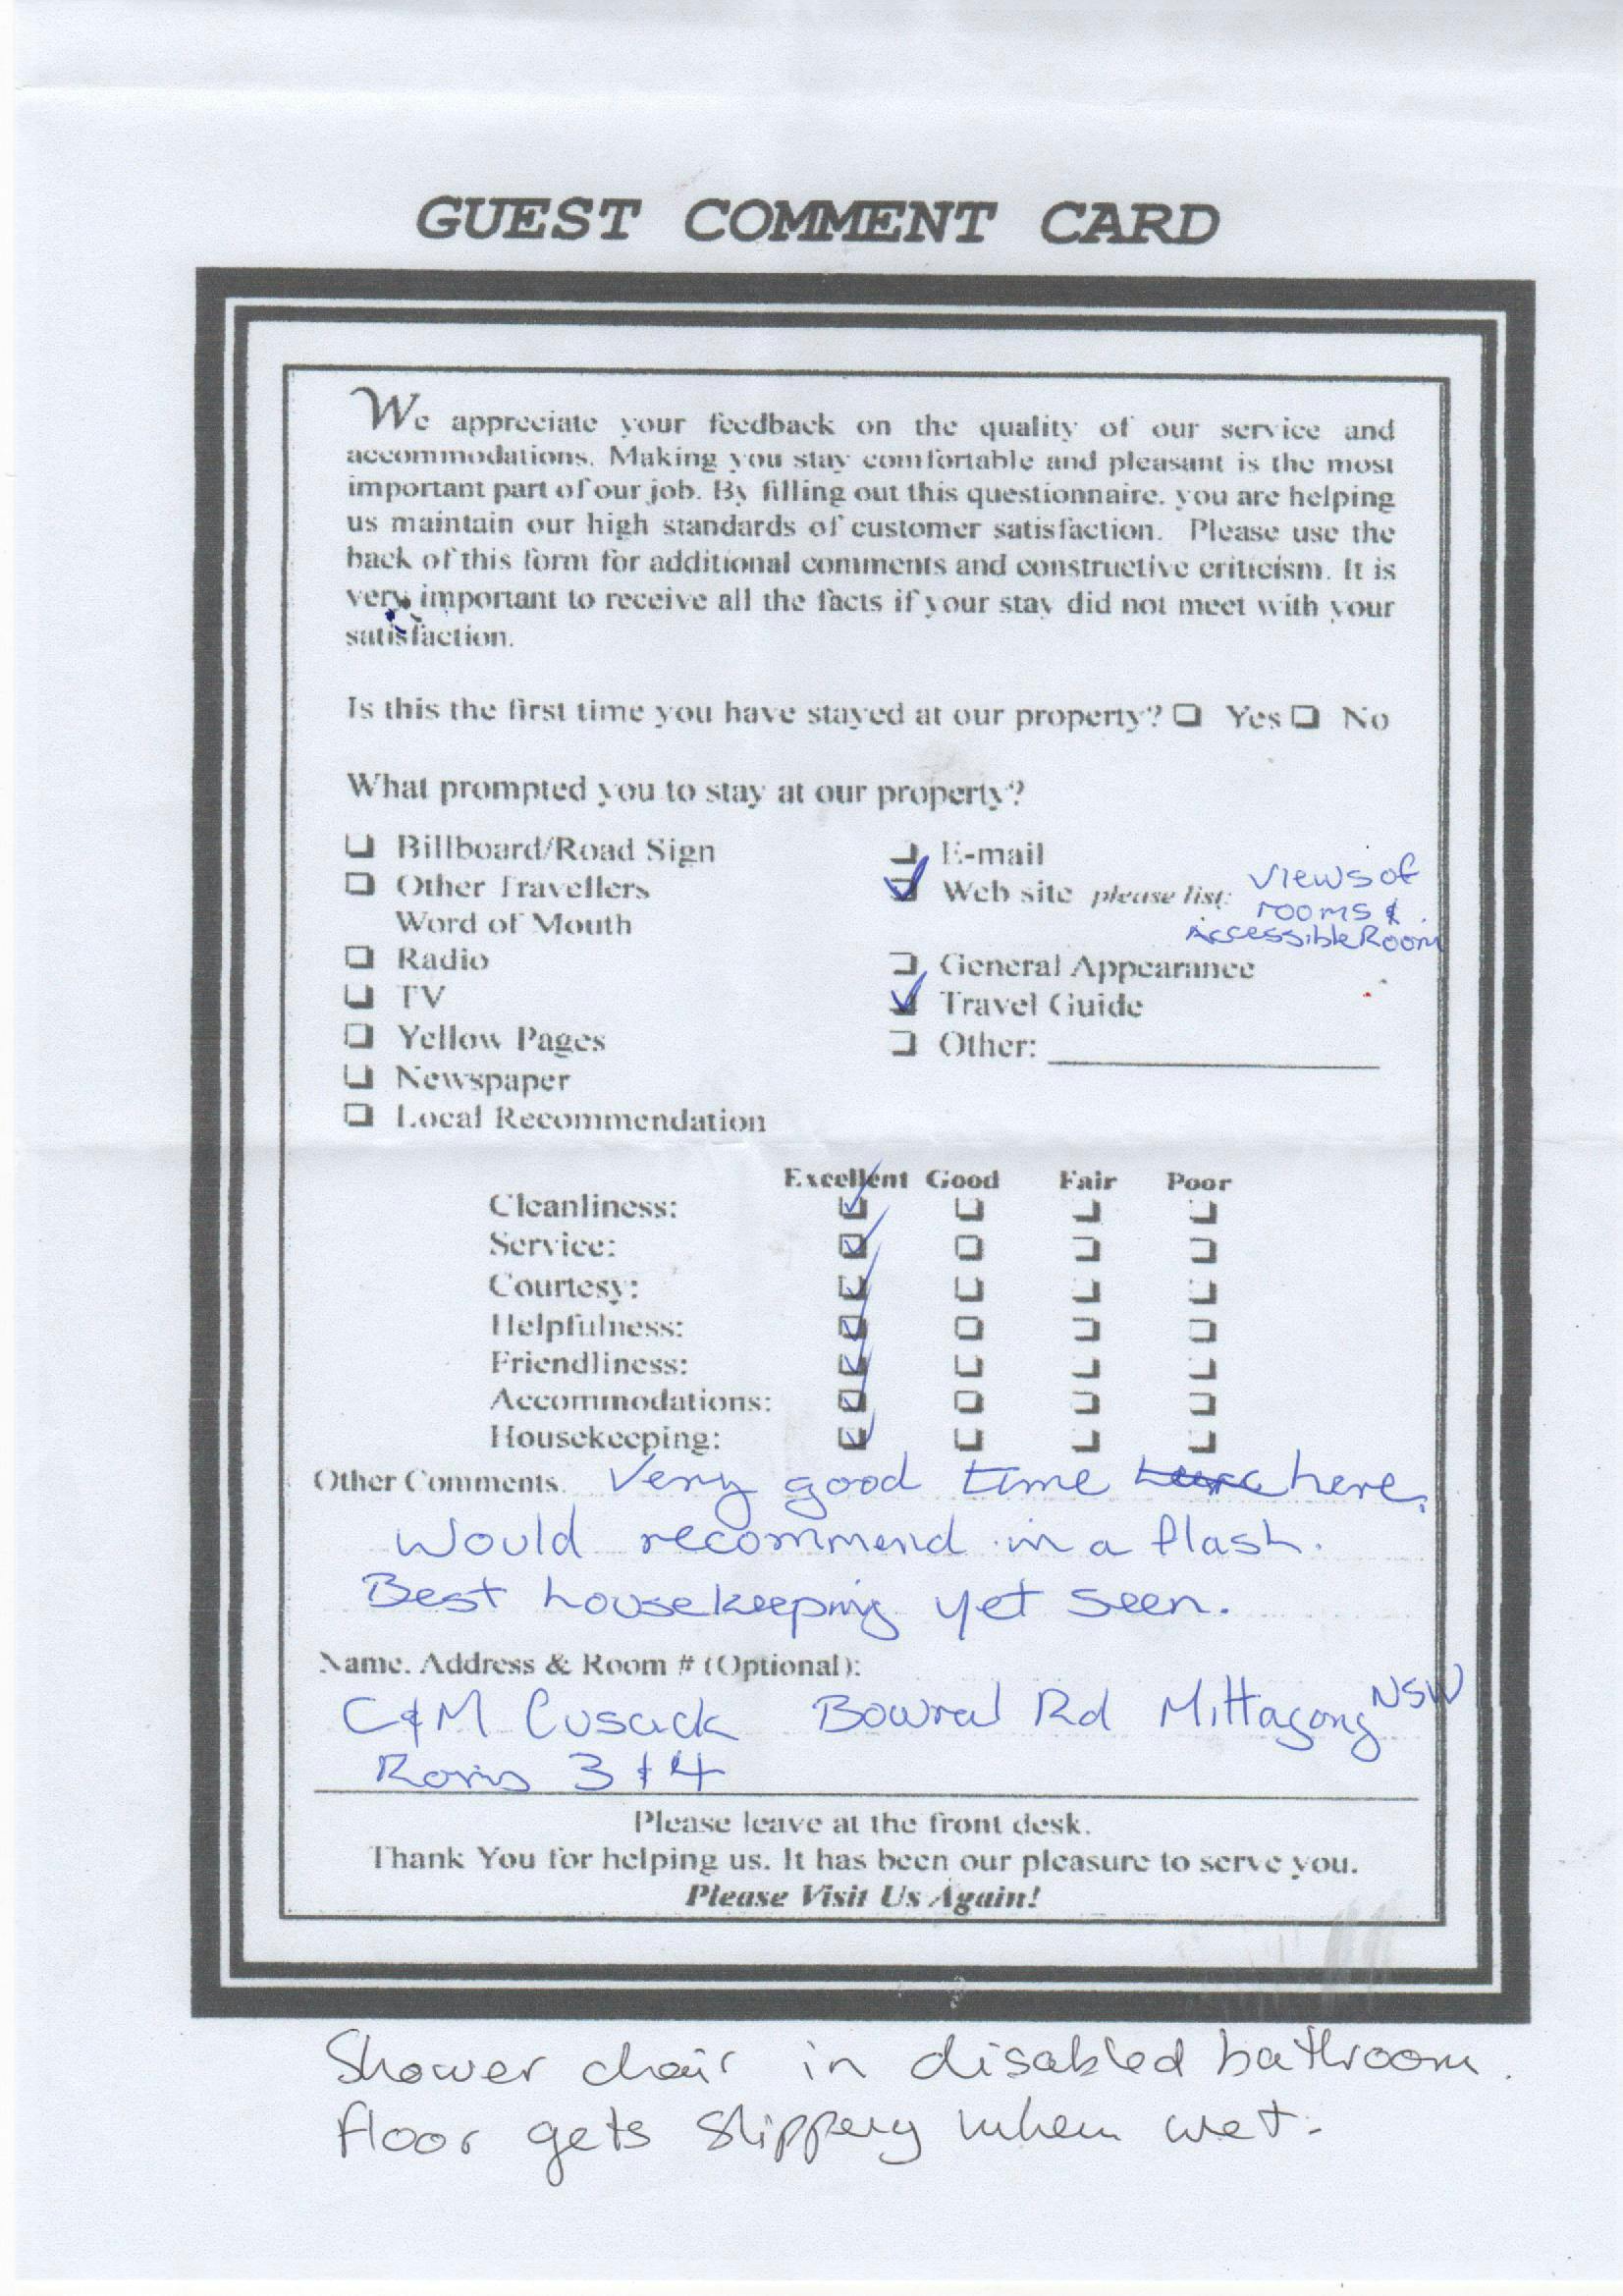 GUEST COMMENT CARD
We appreciate your feedback on the quality of our service and
accommodations. Making you stay comfortable and pleasant is the most
important part of our job. By filling out this questionnaire, you are helping
us maintain our high standards of customer satisfaction. Please use the
back of this form for additional comments and constructive criticism. It is
very important to receive all the facts if your stay did not meet with your
satisfaction.
Is this the first time you have stayed at our property? ❑ Yes ❑ No
What prompted you to stay at our property?
❑ Billboard/Road Sign
❑ Other Travellers
Word of Mouth
❑ Radio
❑ TV
❑ Yellow Pages
❑ Newspaper
❑ Local Recommendation
❑ E-mail
☑ Web site please list: views of
rooms &
Accessible Room
❑ General Appearance
☑ Travel Guide
❑ Other:
Excellent Good Fair Poor
Cleanliness: ☑ ❑ ❑ ❑
Service: ☑ ❑ ❑ ❑
Courtesy: ☑ ❑ ❑ ❑
Helpfulness: ☑ ❑ ❑ ❑
Friendliness: ☑ ❑ ❑ ❑
Accommodations: ☑ ❑ ❑ ❑
Housekeeping: ☑ ❑ ❑ ❑
Other Comments. Very good time here.
Would recommend in a flash.
Best housekeeping yet seen.
Name, Address & Room # (Optional):
C & M Cusack Bowral Rd Mittagong NSW
Rooms 3 & 4
Please leave at the front desk.
Thank You for helping us. It has been our pleasure to serve you.
Please Visit Us Again!
Shower chair in disabled bathroom.
floor gets slippery when wet.